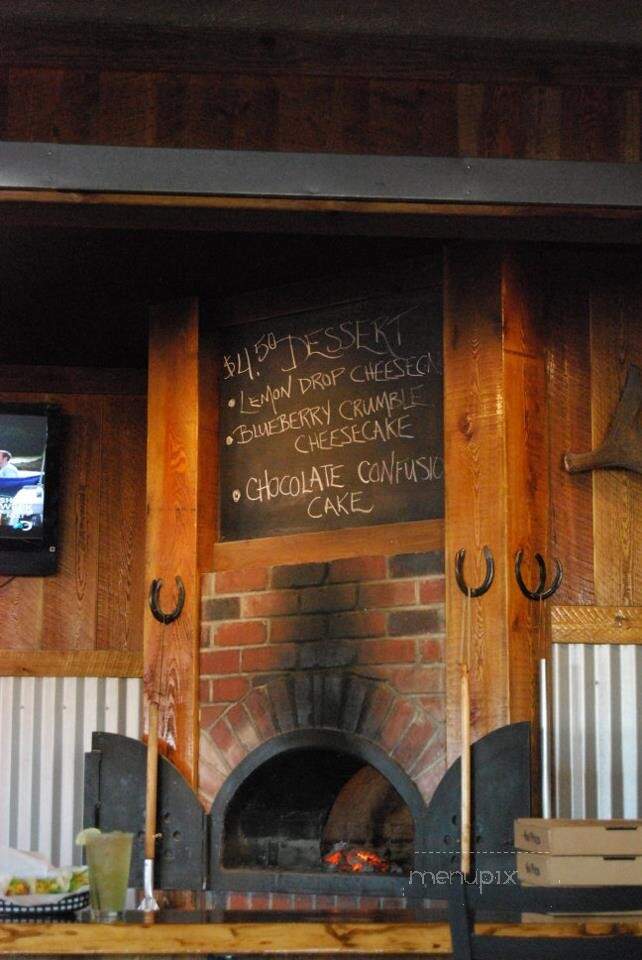 $4.50 DESSERT
• LEMON DROP CHEESECA
• BLUEBERRY CRUMBLE
CHEESECAKE
• CHOCOLATE CONFUSIO
CAKE
menupix